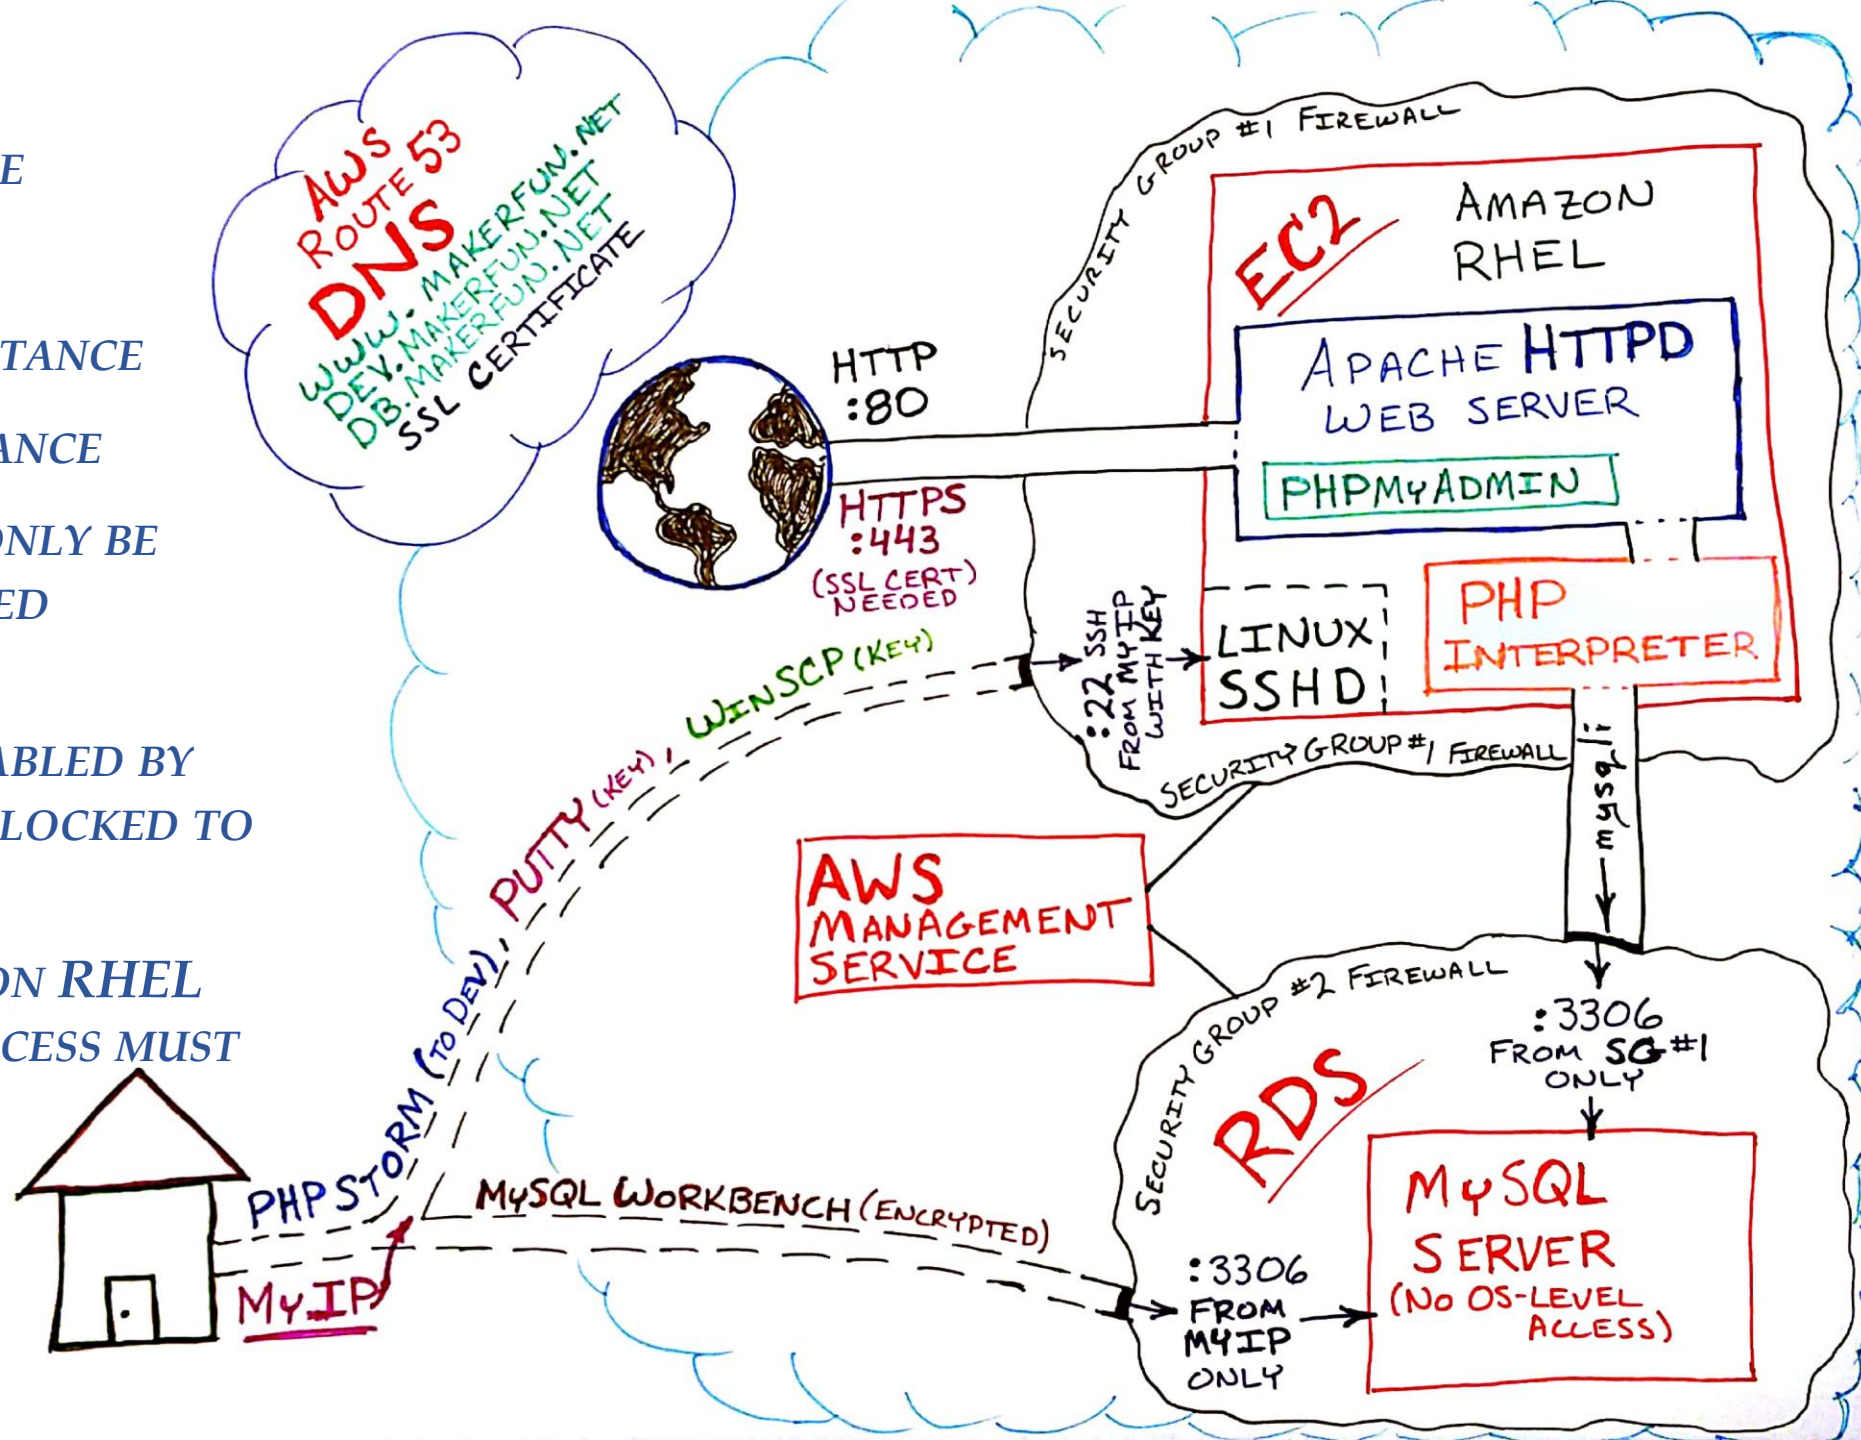 E
TANCE
ANCE
ONLY BE
ED
ABLED BY
LOCKED TO
ON RHEL
CESS MUST
AWS
ROUTE 53
DNS
WWW. MAKERFUN.NET
DEV. MAKERFUN.NET
DB. MAKERFUN.NET
SSL CERTIFICATE
HTTP
:80
HTTPS
:443
(SSL CERT)
NEEDED
SECURITY GROUP #1 FIREWALL
EC2
AMAZON
RHEL
APACHE HTTPD
WEB SERVER
PHPMYADMIN
PHP
INTERPRETER
LINUX
SSHD
:22 SSH
FROM MY IP
WITH KEY
SECURITY GROUP #1 FIREWALL
mysqli
PHPSTORM (TO DEV), PUTTY (KEY), WINSCP (KEY)
AWS
MANAGEMENT
SERVICE
SECURITY GROUP #2 FIREWALL
RDS
:3306
FROM SG #1
ONLY
MySQL
SERVER
(NO OS-LEVEL
ACCESS)
MySQL WORKBENCH (ENCRYPTED)
MYIP
:3306
FROM
MYIP
ONLY